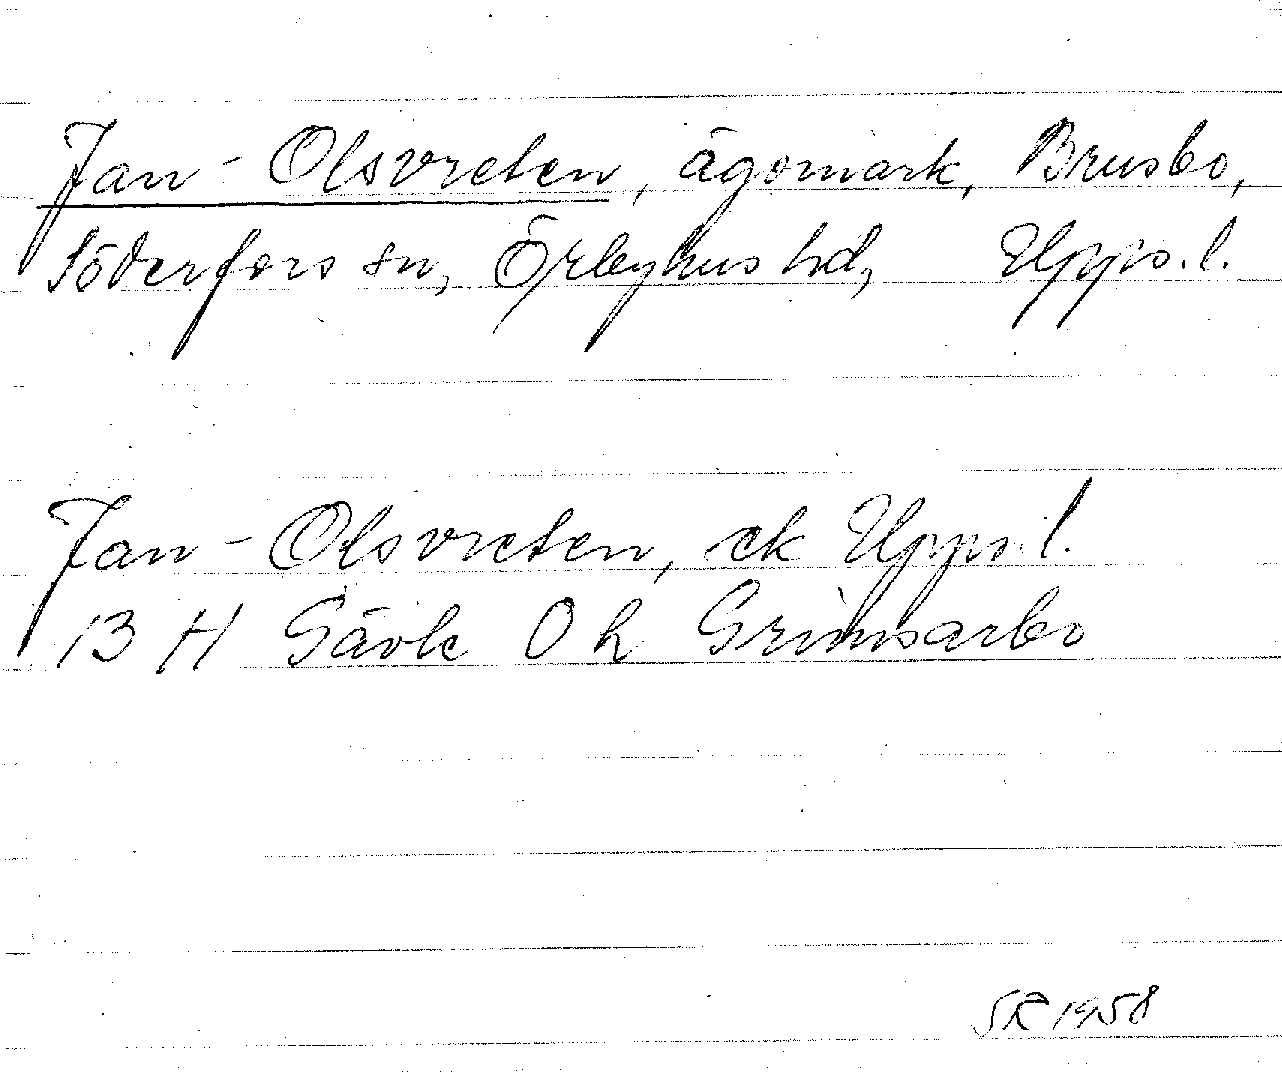 Jan-Olsvreten, ägomark, Brusbo,
Söderfors sn, Örbyhus hd, Upps.l.
Jan-Olsvreten, ek Upps.l.
13 H Gävle Oh Grimsarbo
SR 1958